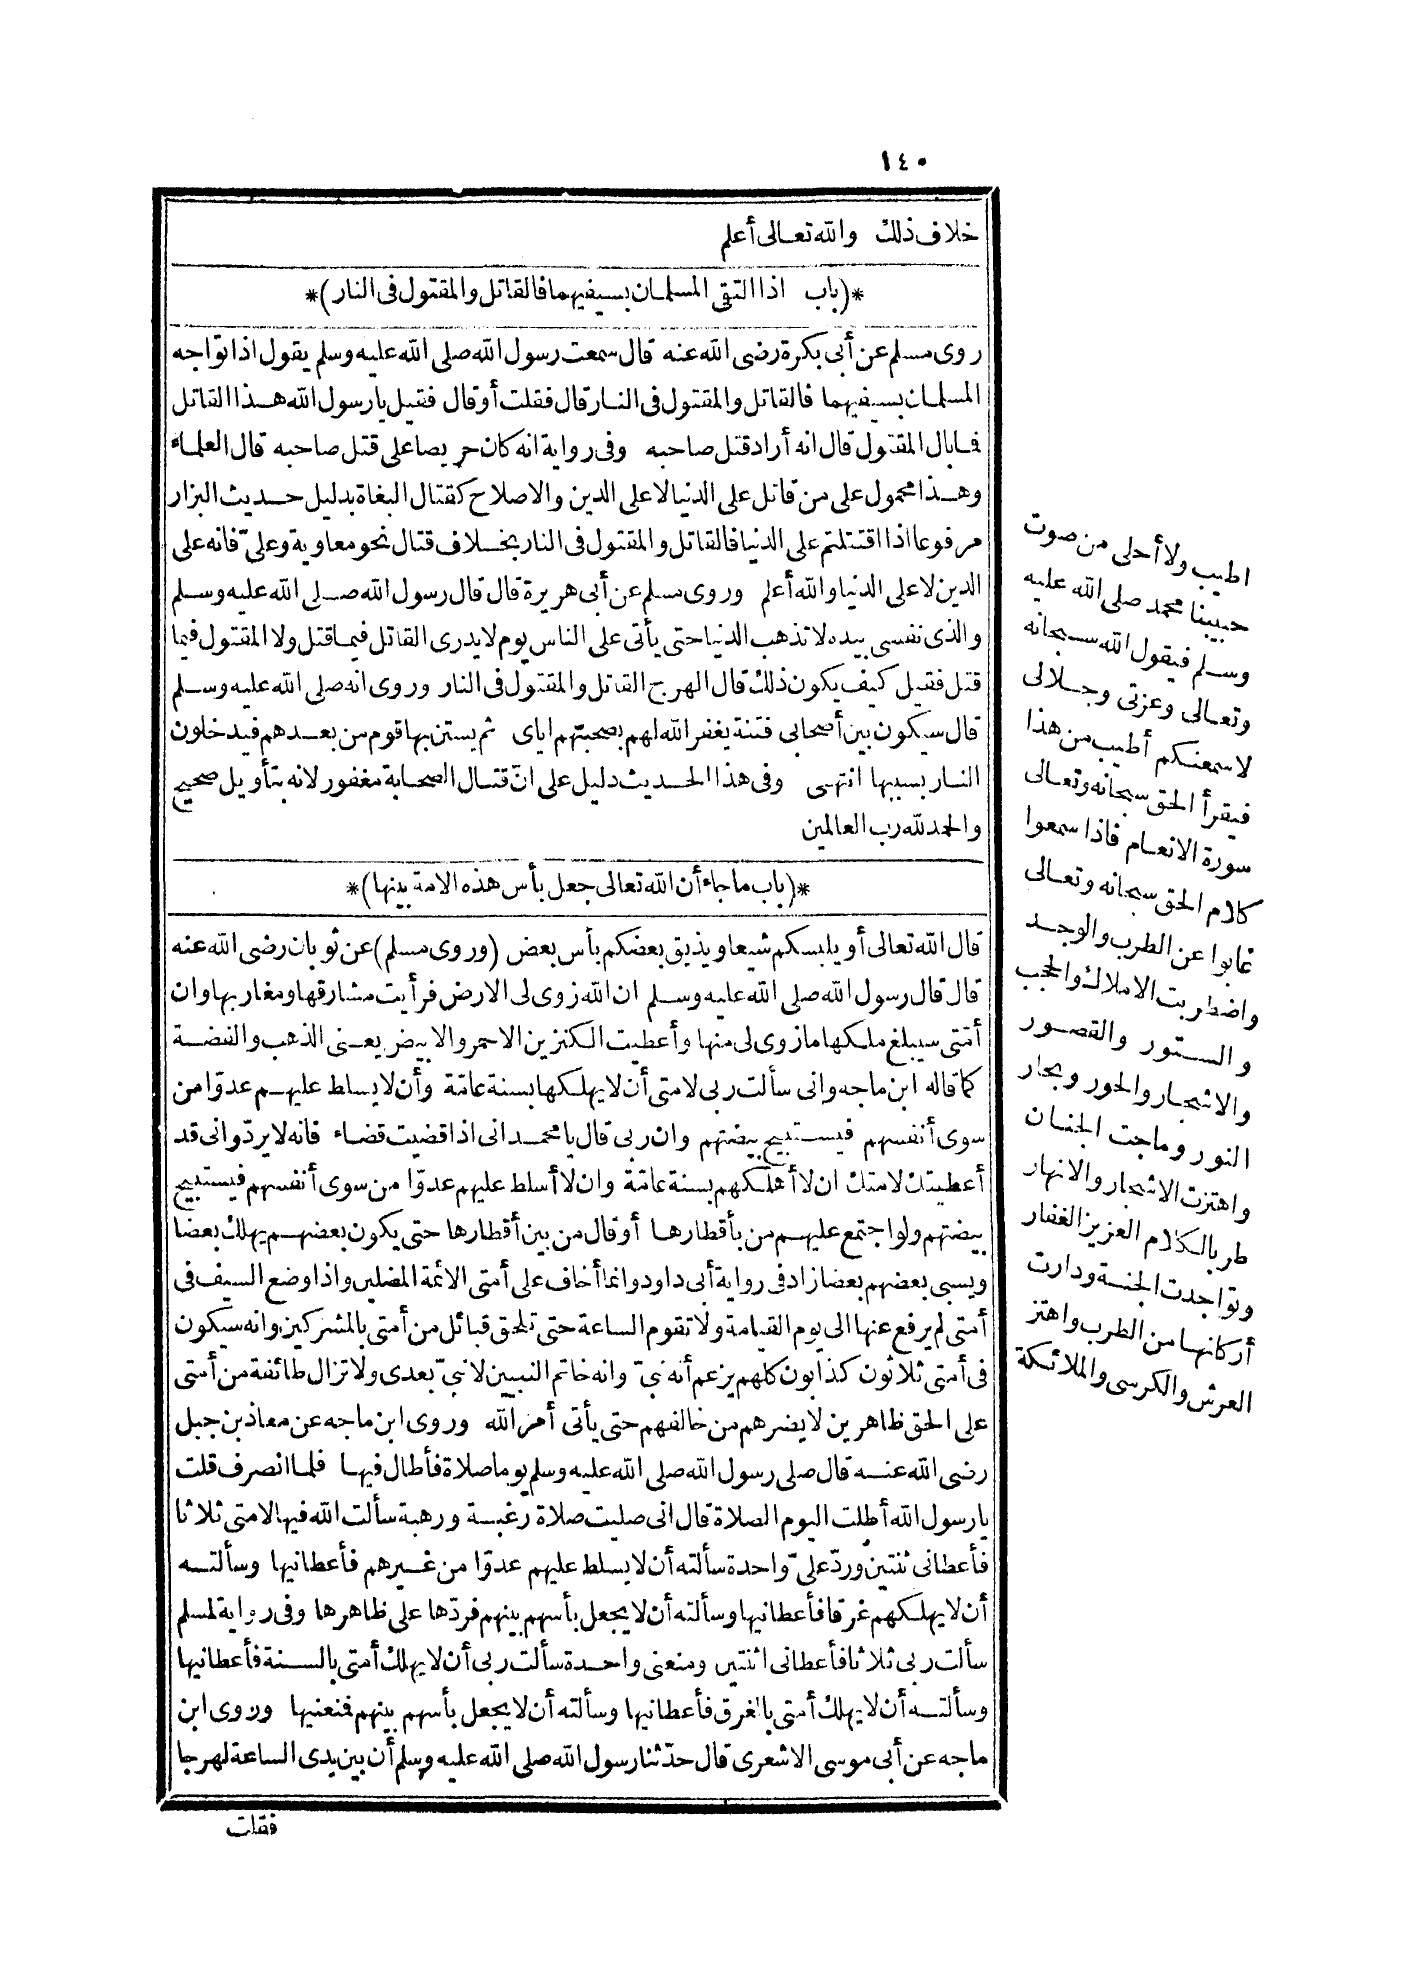 ١٤٠
خلاف ذلك والله تعالى أعلم
*(باب اذا التقى المسلمان بسيفيهما فالقاتل والمقتول فى النار)*
روى مسلم عن أبى بكرة رضى الله عنه قال سمعت رسول الله صلى الله عليه وسلم يقول اذا تواجه
المسلمان بسيفيهما فالقاتل والمقتول فى النار قال فقلت أو قال فقيل يا رسول الله هذا القاتل
فما بال المقتول قال انه أراد قتل صاحبه وفى رواية انه كان حريصا على قتل صاحبه قال العلماء
وهذا محمول على من قاتل على الدنيا لا على الدين والاصلاح كقتال البغاة بدليل حديث البزار
مرفوعا اذا اقتتلتم على الدنيا فالقاتل والمقتول فى النار بخلاف قتال نحو معاوية وعلىّ فانه على
الدين لا على الدنيا والله أعلم وروى مسلم عن أبى هريرة قال قال رسول الله صلى الله عليه وسلم
والذى نفسى بيده لا تذهب الدنيا حتى يأتى على الناس يوم لا يدرى القاتل فيما قتل ولا المقتول فيما
قتل فقيل كيف يكون ذلك قال الهرج القاتل والمقتول فى النار وروى انه صلى الله عليه وسلم
قال سيكون بين أصحابى فتنة يغفر الله لهم بصحبتهم اياى ثم يستن بها قوم من بعدهم فيدخلون
النار بسببها انتهى وفى هذا الحديث دليل على انّ قتال الصحابة مغفور لانه بتأويل صحيح
والحمد لله رب العالمين
*(باب ما جاء أن الله تعالى جعل بأس هذه الامة بينها)*
قال الله تعالى أو يلبسكم شيعا ويذيق بعضكم بأس بعض (وروى مسلم) عن ثوبان رضى الله عنه
قال قال رسول الله صلى الله عليه وسلم ان الله زوى لى الارض فرأيت مشارقها ومغاربها وان
أمتى سيبلغ ملكها ما زوى لى منها وأعطيت الكنزين الاحمر والابيض يعنى الذهب والفضة
كما قاله ابن ماجه وانى سألت ربى لامتى أن لا يهلكها بسنة عامّة وأن لا يسلط عليهم عدوّا من
سوى أنفسهم فيستبيح بيضتهم وان ربى قال يا محمد انى اذا قضيت قضاء فانه لا يردّ وانى قد
أعطيتك لامتك ان لا أهلكهم بسنة عامّة وان لا أسلط عليهم عدوّا من سوى أنفسهم فيستبيح
بيضتهم ولو اجتمع عليهم من بأقطارها أو قال من بين أقطارها حتى يكون بعضهم يهلك بعضا
ويسبى بعضهم بعضا زاد فى رواية أبى داود وانما أخاف على أمتى الائمة المضلين واذا وضع السيف فى
أمتى لم يرفع عنها الى يوم القيامة ولا تقوم الساعة حتى تلحق قبائل من أمتى بالمشركين وانه سيكون
فى أمتى ثلاثون كذابون كلهم يزعم أنه نبىّ وانه خاتم النبيين لا نبىّ بعدى ولا تزال طائفة من أمتى
على الحق ظاهرين لا يضرهم من خالفهم حتى يأتى أمر الله وروى ابن ماجه عن معاذ بن جبل
رضى الله عنه قال صلى رسول الله صلى الله عليه وسلم يوما صلاة فأطال فيها فلما انصرف قلت
يا رسول الله أطلت اليوم الصلاة قال انى صليت صلاة رغبة ورهبة سألت الله فيها لامتى ثلاثا
فأعطانى ثنتين وردّ علىّ واحدة سألته أن لا يسلط عليهم عدوّا من غيرهم فأعطانيها وسألته
أن لا يهلكهم غرقا فأعطانيها وسألته أن لا يجعل بأسهم بينهم فردّها على ظاهرها وفى رواية لمسلم
سألت ربى ثلاثا فأعطانى اثنتين ومنعنى واحدة سألت ربى أن لا يهلك أمتى بالسنة فأعطانيها
وسألته أن لا يهلك أمتى بالغرق فأعطانيها وسألته أن لا يجعل بأسهم بينهم فمنعنيها وروى ابن
ماجه عن أبى موسى الاشعرى قال حدّثنا رسول الله صلى الله عليه وسلم أن بين يدى الساعة لهرجا
فقلت
اطيب ولا أحلى من صوت
حبيبنا محمد صلى الله عليه
وسلم فيقول الله سبحانه
وتعالى وعزتى وجلالى
لاسمعنكم أطيب من هذا
فيقرأ الحق سبحانه وتعالى
سورة الانعام فاذا سمعوا
كلام الحق سبحانه وتعالى
غابوا عن الطرب والوجد
واضطربت الاملاك والحجب
والستور والقصور
والاشجار والحور وبحار
النور وماجت الجنان
واهتزت الاشجار والانهار
طربا لكلام العزيز الغفار
وتواجدت الجنة ودارت
أركانها من الطرب واهتز
العرش والكرسى والملائكة